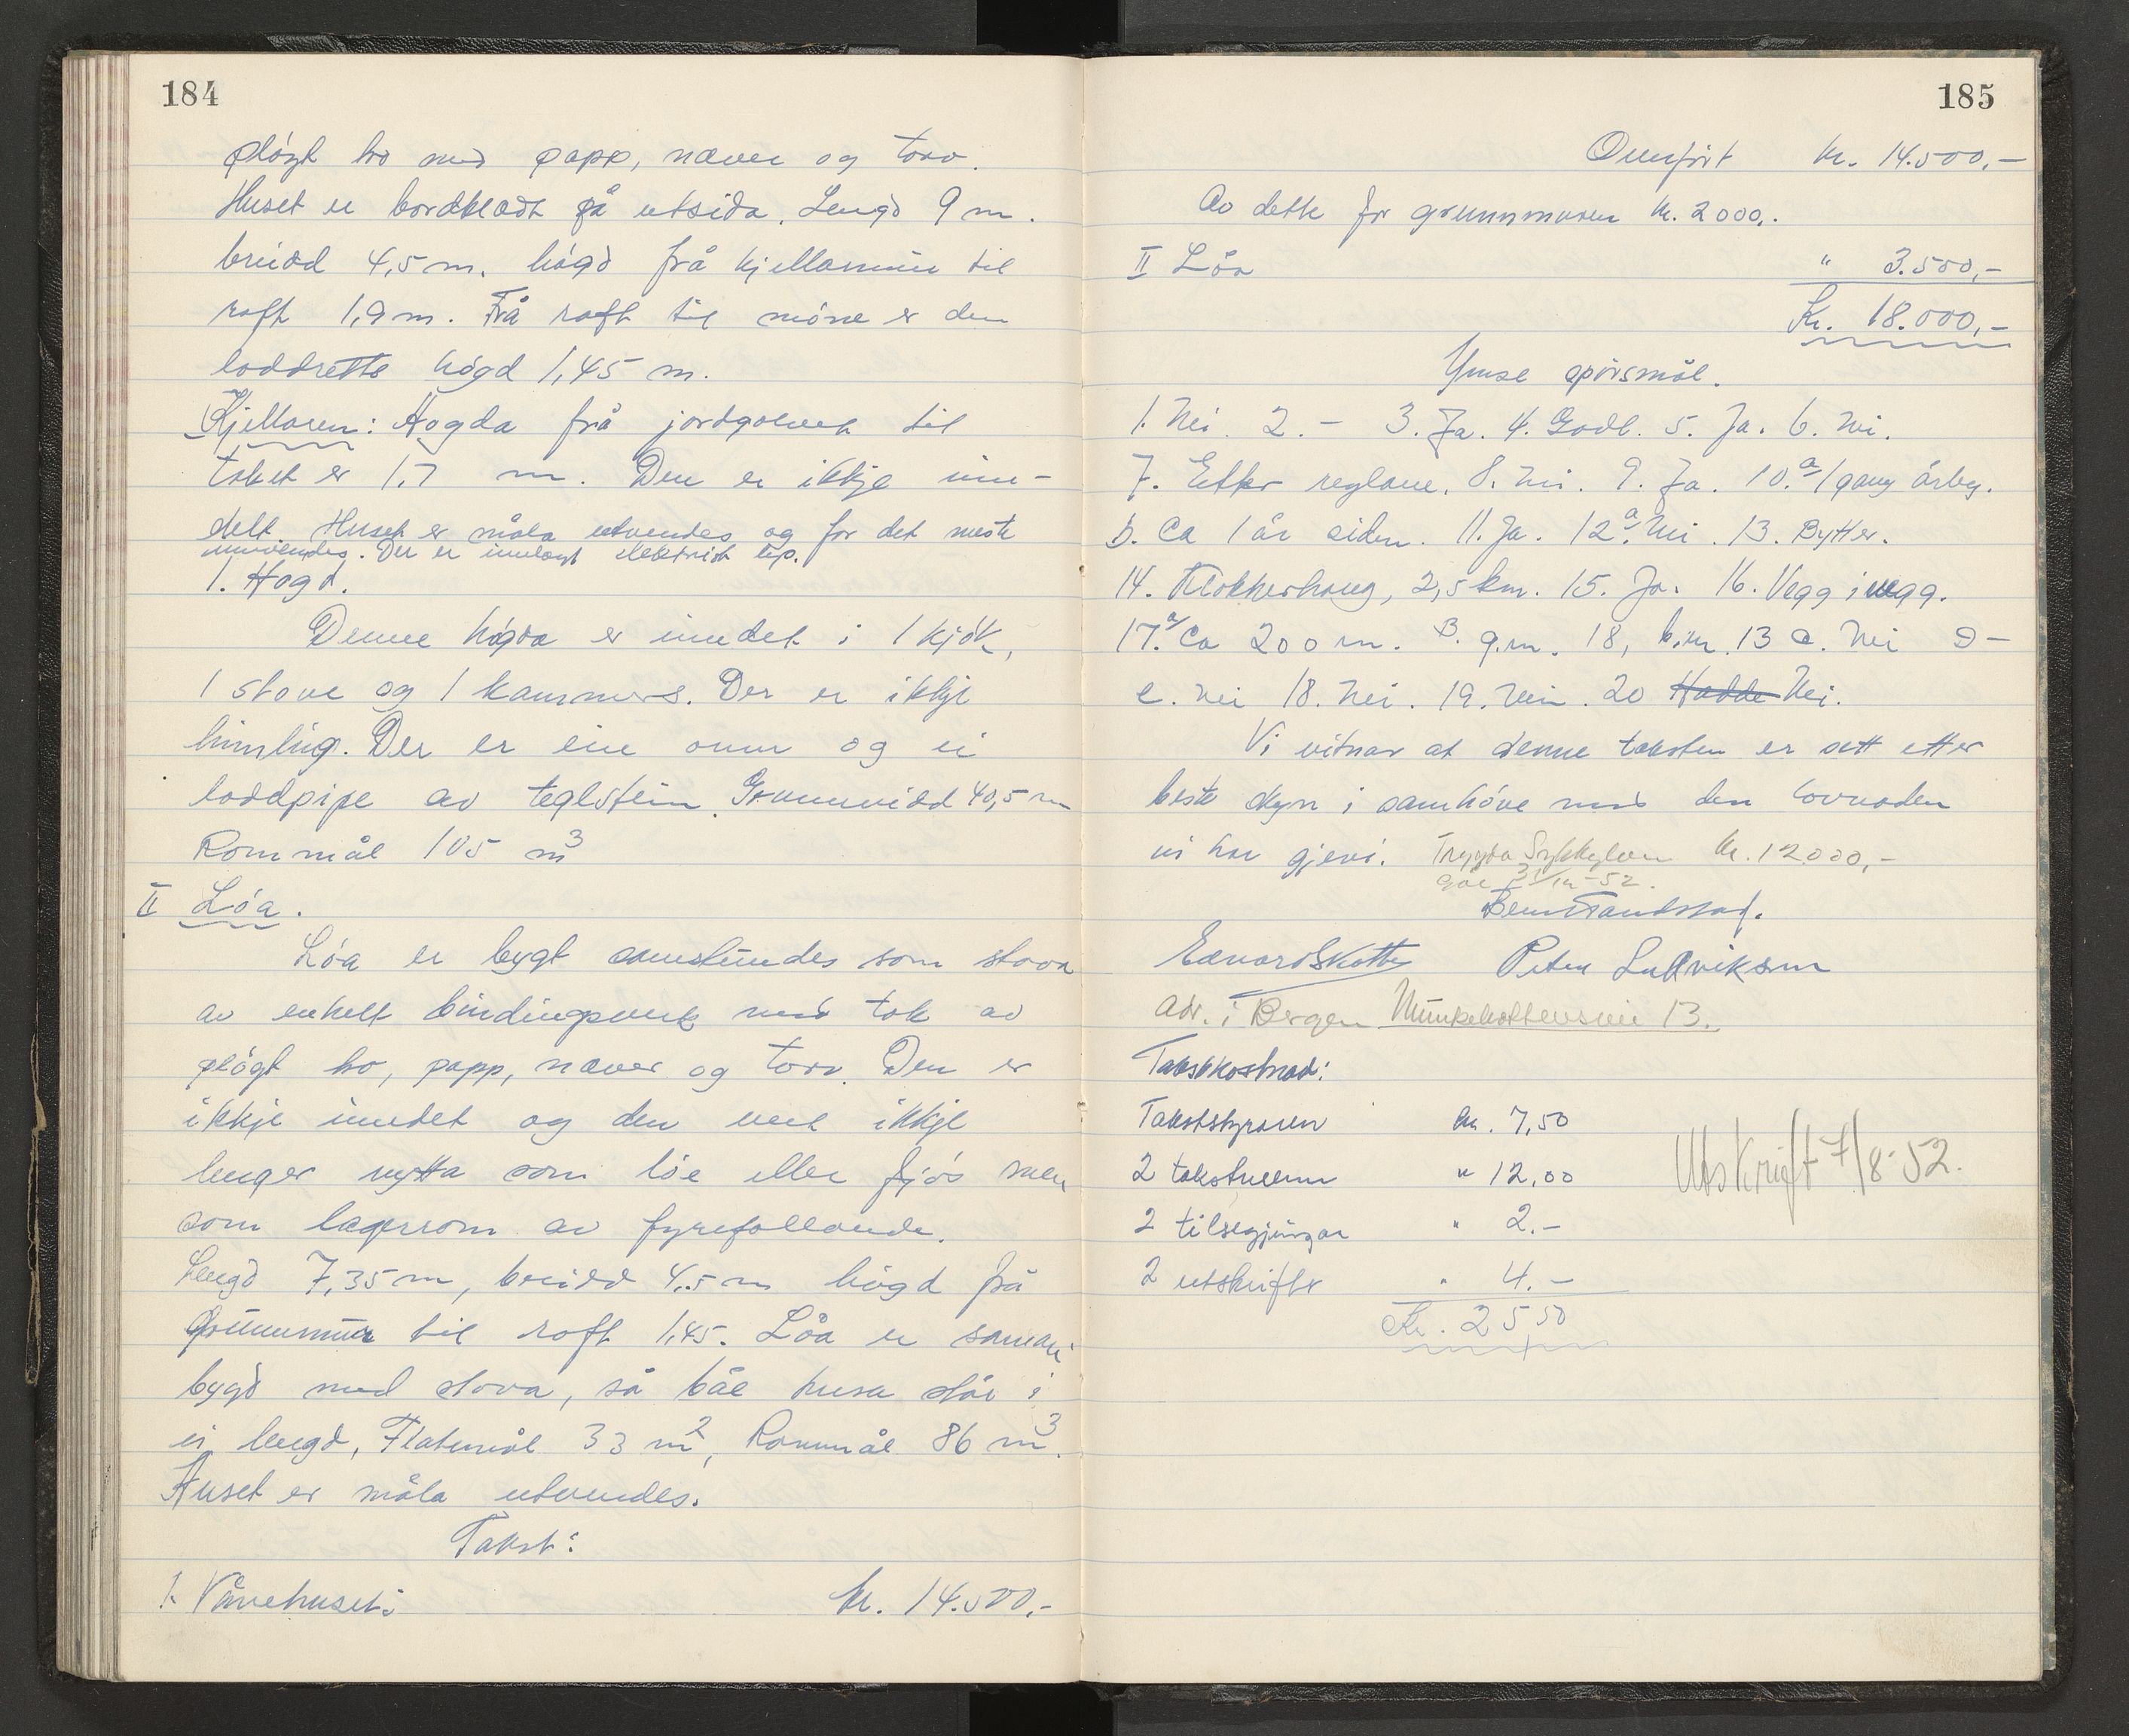 184
pløgt bo med papp, næver og torv.
Huset er bordkledt på utsida. Lengd 9 m.
breidd 4,5 m. høgd frå kjellarmur til
raft 1,9 m. Frå raft til møne er den
loddrette høgd 1,45 m.
Kjellaren: Høgda frå jordgolvet til
taket er 1,7 m. Den er ikkje inn-
delt. Huset er måla utvendes og for det meste
innvendes. Der er innlagt elektrisk
1. Høgd.
Denne høgda er inndelt i 1 kjøk,
1 stove og 1 kammers. Der er ikkje
himling. Der er ein omn og ei
loddpipe av teglstein. Grunnvidd 40,5 m
Rommål 105 m³
II Løa.
Løa er bygt samstundes som stova
av enkelt bindingsverk med tak av
pløgt bo, papp, næver og torv. Den er
ikkje inndelt og den vert ikkje
lenger nytta som løe eller fjøs men
som lagerrom av fyrefallande.
Lengd 7,35 m, breidd 4,5 m høgd frå
Grunnmur til raft 1,45. Løa er saman-
bygd med stova, så båe husa står i
ei lengd, Flatemål 33 m², Rommål 86 m³.
Huset er måla utvendes.
Takst:
1. Vånehuset: kr. 14.500,-
185
Overført kr. 14.500,-
Av dette for grunnmuren kr. 2000,.
II Løa " 3.500,-
Kr. 18.000,-
Ymse spørsmål.
1. Nei. 2. - 3. Ja. 4. Godt. 5. Ja. 6. Nei.
7. Etter reglane. 8. Nei. 9. Ja. 10. a/ 1 gang årleg.
b. Ca 1 år siden. 11. Ja. 12 a. Nei. 13. Bytter.
14. Klokkerhaug, 2,5 km. 15. Ja. 16. Vegg i vegg.
17. a/ Ca 200 m. B. g.m. 18, b.nr. 13 c. Nei d -
e. Nei 18. Nei. 19. Nein. 20 Hadde Nei.
Vi vitnar at denne taksten er sett etter
beste skyn i samhøve med den lovnaden
vi har gjevi. Trygda Sykkylven kr. 12000,-
31/12-52.
Edvard Skotte Peter Ludviksen
adr. i Bergen 13.
Takstkostnad:
Takststyraren kr. 7,50
2 takstmenn " 12,00
2 tilsegjingar " 2.-
2 utskrifter " 4.-
Kr. 25 50
Utskrift 7/8-52.